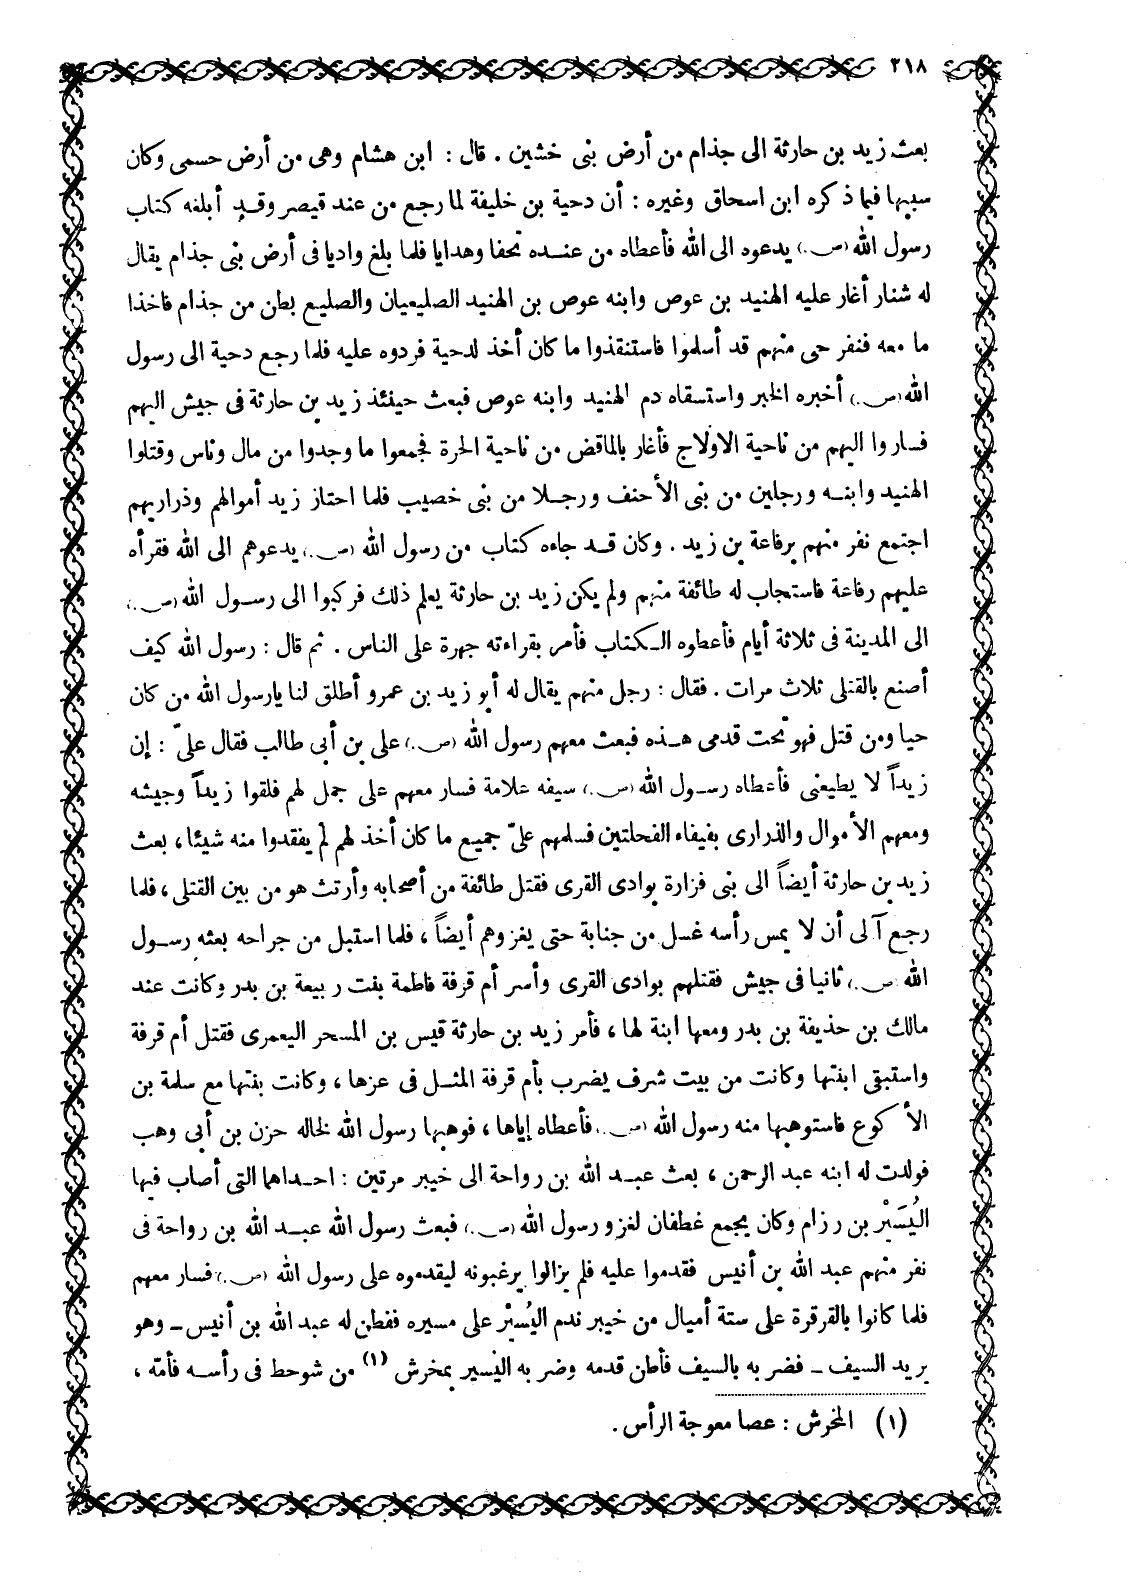 ٢١٨
بعث زيد بن حارثة الى جذام من أرض بنى خشين . قال : ابن هشام وهى من أرض حسمى وكان
سببها فيما ذكره ابن اسحاق وغيره : أن دحية بن خليفة لما رجع من عند قيصر وقد أبلغه كتاب
رسول الله (ص.) يدعوه الى الله فأعطاه من عنده تحفا وهدايا فلما بلغ واديا فى أرض بنى جذام يقال
له شنار أغار عليه الهنيد بن عوص وابنه عوص بن الهنيد الصليعيان والصليع بطن من جذام فاخذا
ما معه فنفر حى منهم قد أسلموا فاستنقذوا ما كان أخذ لدحية فردوه عليه فلما رجع دحية الى رسول
الله (ص.) أخبره الخبر واستسقاه دم الهنيد وابنه عوص فبعث حينئذ زيد بن حارثة فى جيش اليهم
فساروا اليهم من ناحية الاولاج فأغار بالماقض من ناحية الحرة فجمعوا ما وجدوا من مال وناس وقتلوا
الهنيد وابنه ورجلين من بنى الأحنف ورجلا من بنى خصيب فلما احتاز زيد أموالهم وذراريهم
اجتمع نفر منهم برفاعة بن زيد . وكان قد جاءه كتاب من رسول الله (ص.) يدعوهم الى الله فقرأه
عليهم رفاعة فاستجاب له طائفة منهم ولم يكن زيد بن حارثة يعلم ذلك فركبوا الى رسول الله (ص.)
الى المدينة فى ثلاثة أيام فأعطوه الكتاب فأمر بقراءته جهرة على الناس . ثم قال : رسول الله كيف
أصنع بالقتلى ثلاث مرات . فقال : رجل منهم يقال له أبو زيد بن عمرو أطلق لنا يارسول الله من كان
حيا ومن قتل فهو تحت قدمى هذه فبعث معهم رسول الله (ص.) على بن أبي طالب فقال علىّ : إن
زيداً لا يطيعنى فأعطاه رسول الله (ص.) سيفه علامة فسار معهم على جمل لهم فلقوا زيداً وجيشه
ومعهم الأموال والذرارى بفيفاء الفحلتين فسلمهم علىّ جميع ما كان أخذ لهم لم يفقدوا منه شيئا ، بعث
زيد بن حارثة أيضاً الى بنى فزارة بوادى القرى فقتل طائفة من أصحابه وأرتث هو من بين القتلى ، فلما
رجع آلى أن لا يمس رأسه غسل من جنابة حتى يغزوهم أيضاً ، فلما استبل من جراحه بعثه رسول
الله (ص.) ثانيا فى جيش فقتلهم بوادى القرى وأسر أم قرفة فاطمة بنت ربيعة بن بدر وكانت عند
مالك بن حذيفة بن بدر ومعها ابنة لها ، فأمر زيد بن حارثة قيس بن المسحر اليعمرى فقتل أم قرفة
واستبقى ابنتها وكانت من بيت شرف يضرب بأم قرفة المثل فى عزها ، وكانت بنتها مع سلمة بن
الأكوع فاستوهبها منه رسول الله (ص.) فأعطاه إياها ، فوهبها رسول الله لخاله حزن بن أبي وهب
فولدت له ابنه عبد الرحمن ، بعث عبد الله بن رواحة الى خيبر مرتين : احداهما التى أصاب فيها
اليُسَيْر بن رزام وكان يجمع غطفان لغزو رسول الله (ص.) فبعث رسول الله عبد الله بن رواحة فى
نفر منهم عبد الله بن أنيس فقدموا عليه فلم يزالوا يرغبونه ليقدموه على رسول الله (ص.) فسار معهم
فلما كانوا بالقرقرة على ستة أميال من خيبر ندم اليُسيْر على مسيره ففطن له عبد الله بن أنيس ـ وهو
يريد السيف ـ فضربه بالسيف فأطن قدمه وضربه اليسير بمخرش (١) من شوحط فى رأسه فأمّه ،
(١) المخرش : عصا معوجة الرأس .